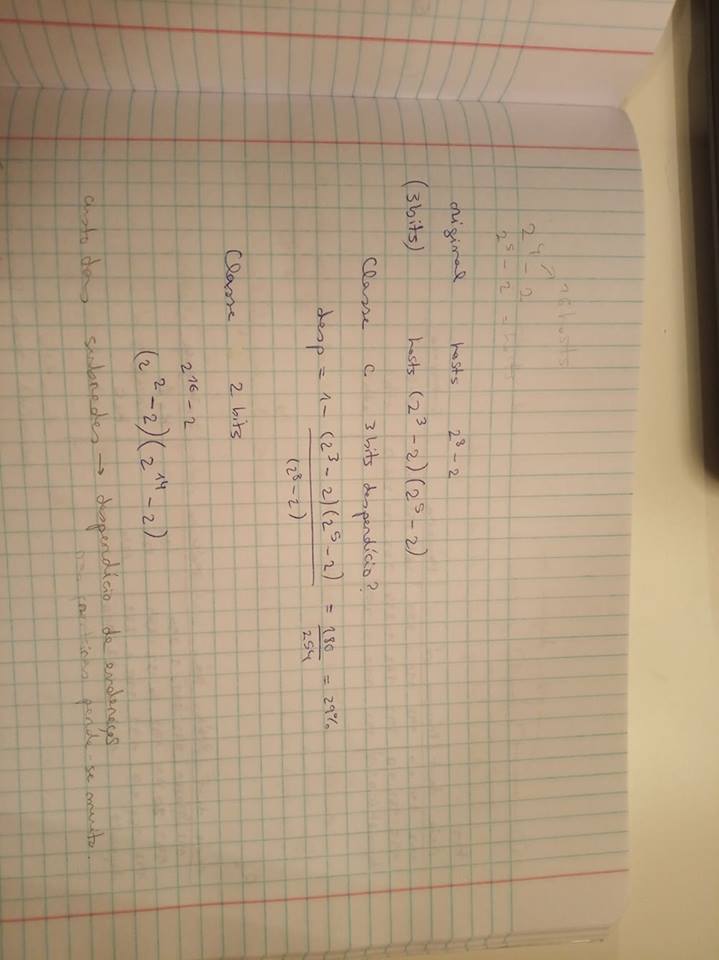 16 hosts
2⁴ - 2
2⁵ - 2 = hosts
original hosts 2⁸ - 2
(3 bits) hosts (2³ - 2)(2⁵ - 2)
Classe C 3 bits despendício?
desp = 1 - (2³ - 2)(2⁵ - 2) / (2⁸ - 2) = 180 / 254 = 29%
Classe 2 bits
2¹⁶ - 2
(2² - 2)(2¹⁴ - 2)
custo das subredes → despendício de endereços
perde-se muito.